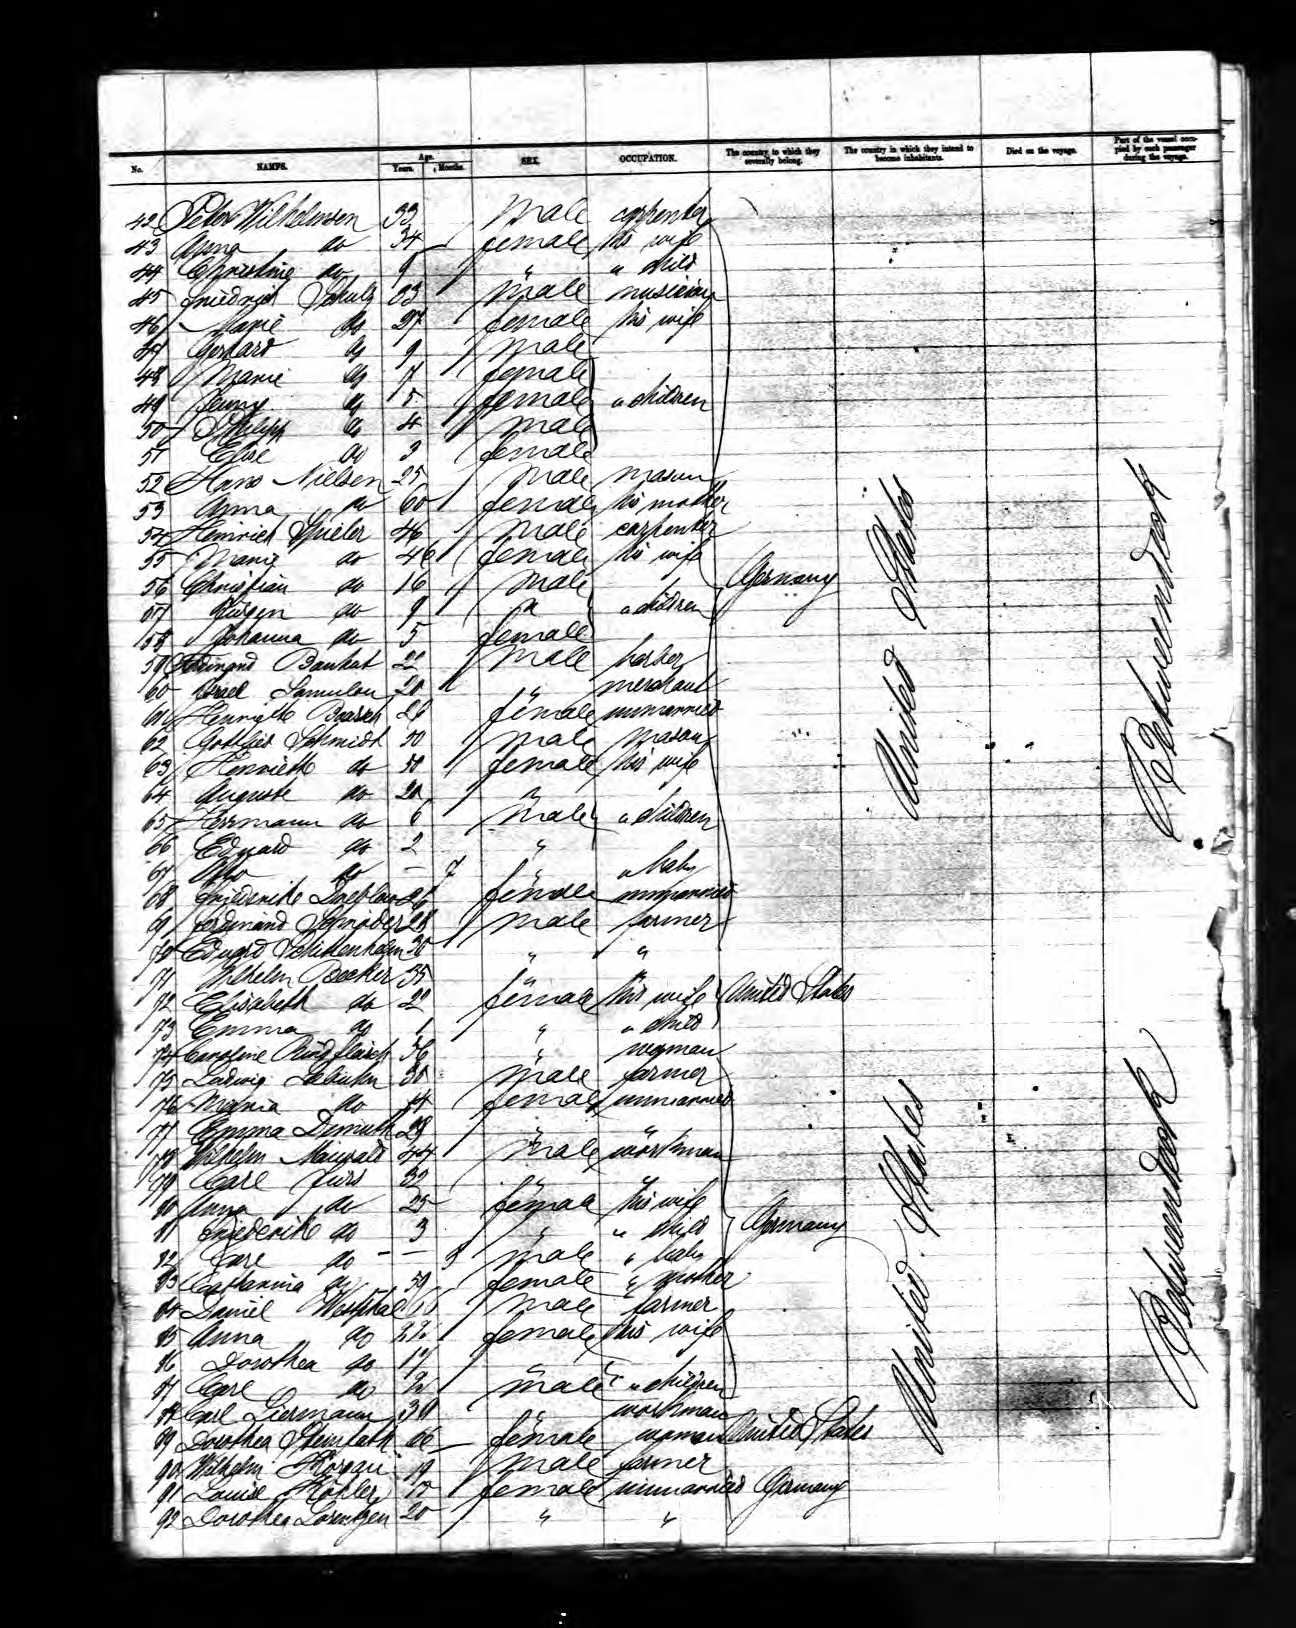 No. NAMES. Age. Years. Months. SEX. OCCUPATION. The country to which they severally belong. The country in which they intend to become inhabitants. Died on the voyage. Part of the vessel occupied by each passenger during the voyage.
42 Peter Wilhelmsen 33 Male carpenter
43 Anna do 34 female his wife
44 Christine do 9 " " child
45 Friedrich Schulz 33 Male musician
46 Marie do 27 female his wife
47 Gerhard do 9 Male
48 Marie do 7 female
49 Jenny do 5 female " children
50 Philipp do 4 Male
51 Elise do 3 female
52 Hans Nielsen 25 Male mason
53 Anna do 60 female his mother
54 Heinrich 46 Male carpenter
55 Marie do 46 female his wife
56 Christian do 16 Male Germany
57 Jürgen do 9 " " children
58 Johanna do 5 female
59 Ferdinand 22 Male barber
60 20 " merchant
61 26 female unmarried
62 Gottlieb Schmidt 50 male mason
63 Henriette do 50 female his wife
64 Auguste do 20 "
65 Herrmann do 6 Male " children
66 Eduard do 2 "
67 Otto do — 7 " " baby
68 Friederike 26 female unmarried
69 Ferdinand Schröder 28 Male farmer
70 Eduard 30 " "
71 Wilhelm Becker 35 " "
72 Elisabeth do 22 female his wife United States
73 Emma do 1 " " child
74 Caroline Rindfleisch 56 " woman
75 Ludwig 50 Male farmer
76 Maria do female unmarried
77 Emma Demuth 29 " "
78 Wilhelm 44 Male workman
79 Carl Fürs 32 " "
80 Anna do 25 female his wife
81 Friederike do 3 " " child Germany
82 Carl do — — male " baby
83 Catharina do 50 female " mother
84 Daniel Westphal Male farmer
85 Anna do female his wife
86 Dorothea do 17 "
87 Carl do male " children
88 Carl Liermann 30 " workman
89 Dorothea female woman United States
90 Wilhelm 19 Male farmer
91 Louise Köhler female unmarried Germany
92 Dorothea Lorentzen 20 " "
United States
Betweendeck
United States
Betweendeck